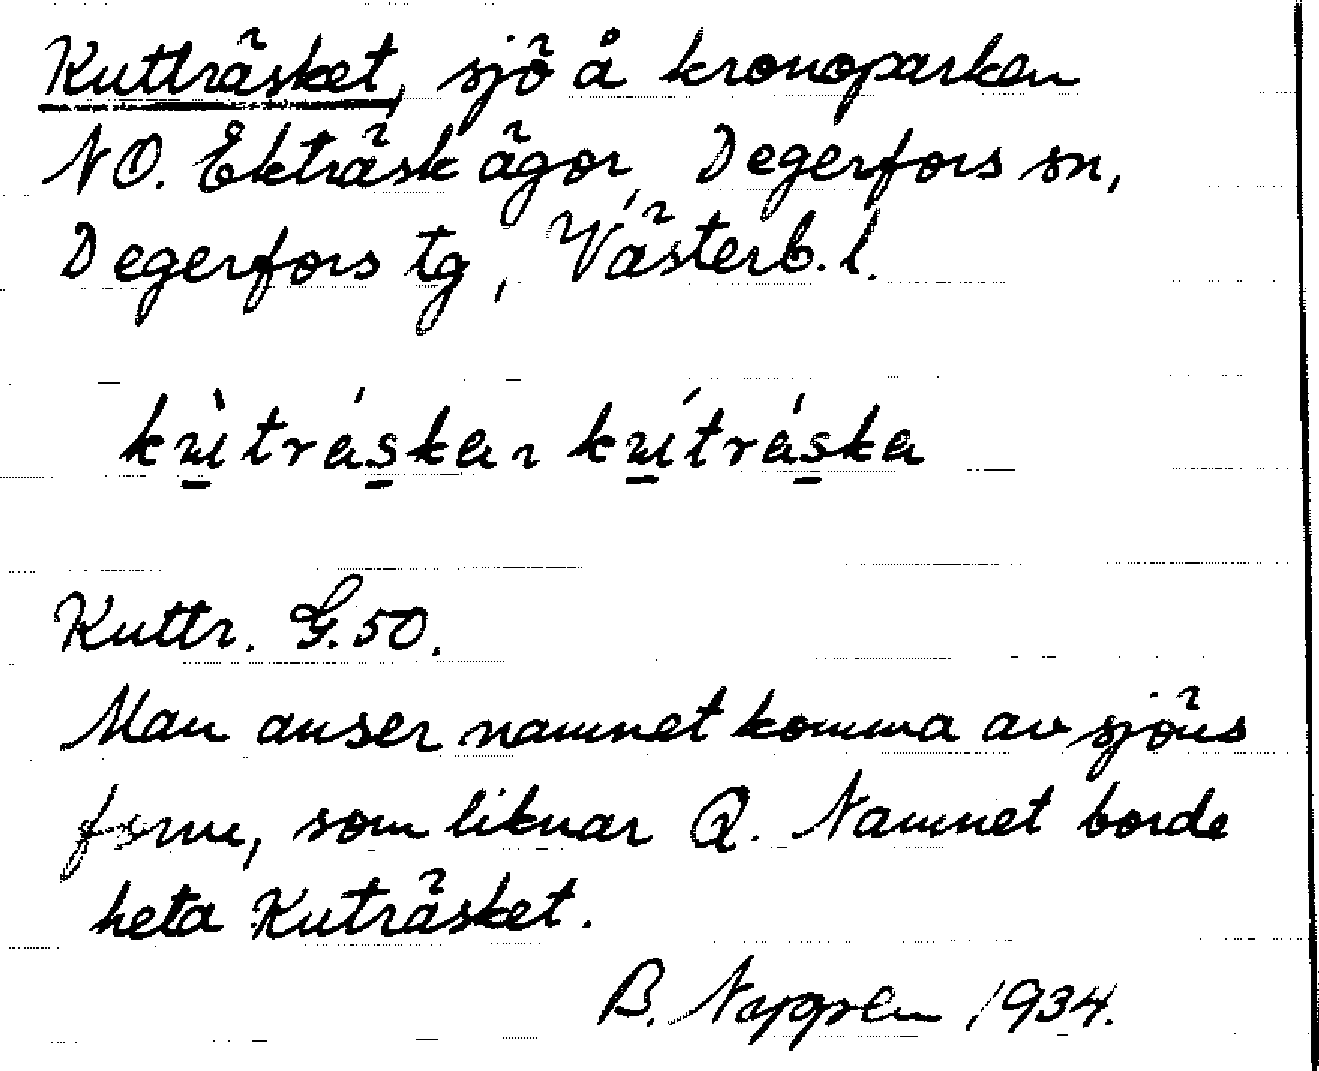 Kutträsket, sjö å kronoparken
NO. Ekträsk ägor, Degerfors sn,
Degerfors tg, Västerb. l.
kùtráska ~ kútráska
Kuttr. G. 50.
Man anser namnet komma av sjöns
form, som liknar Q. Namnet borde
heta Kuträsket.
B. Nygren 1934.